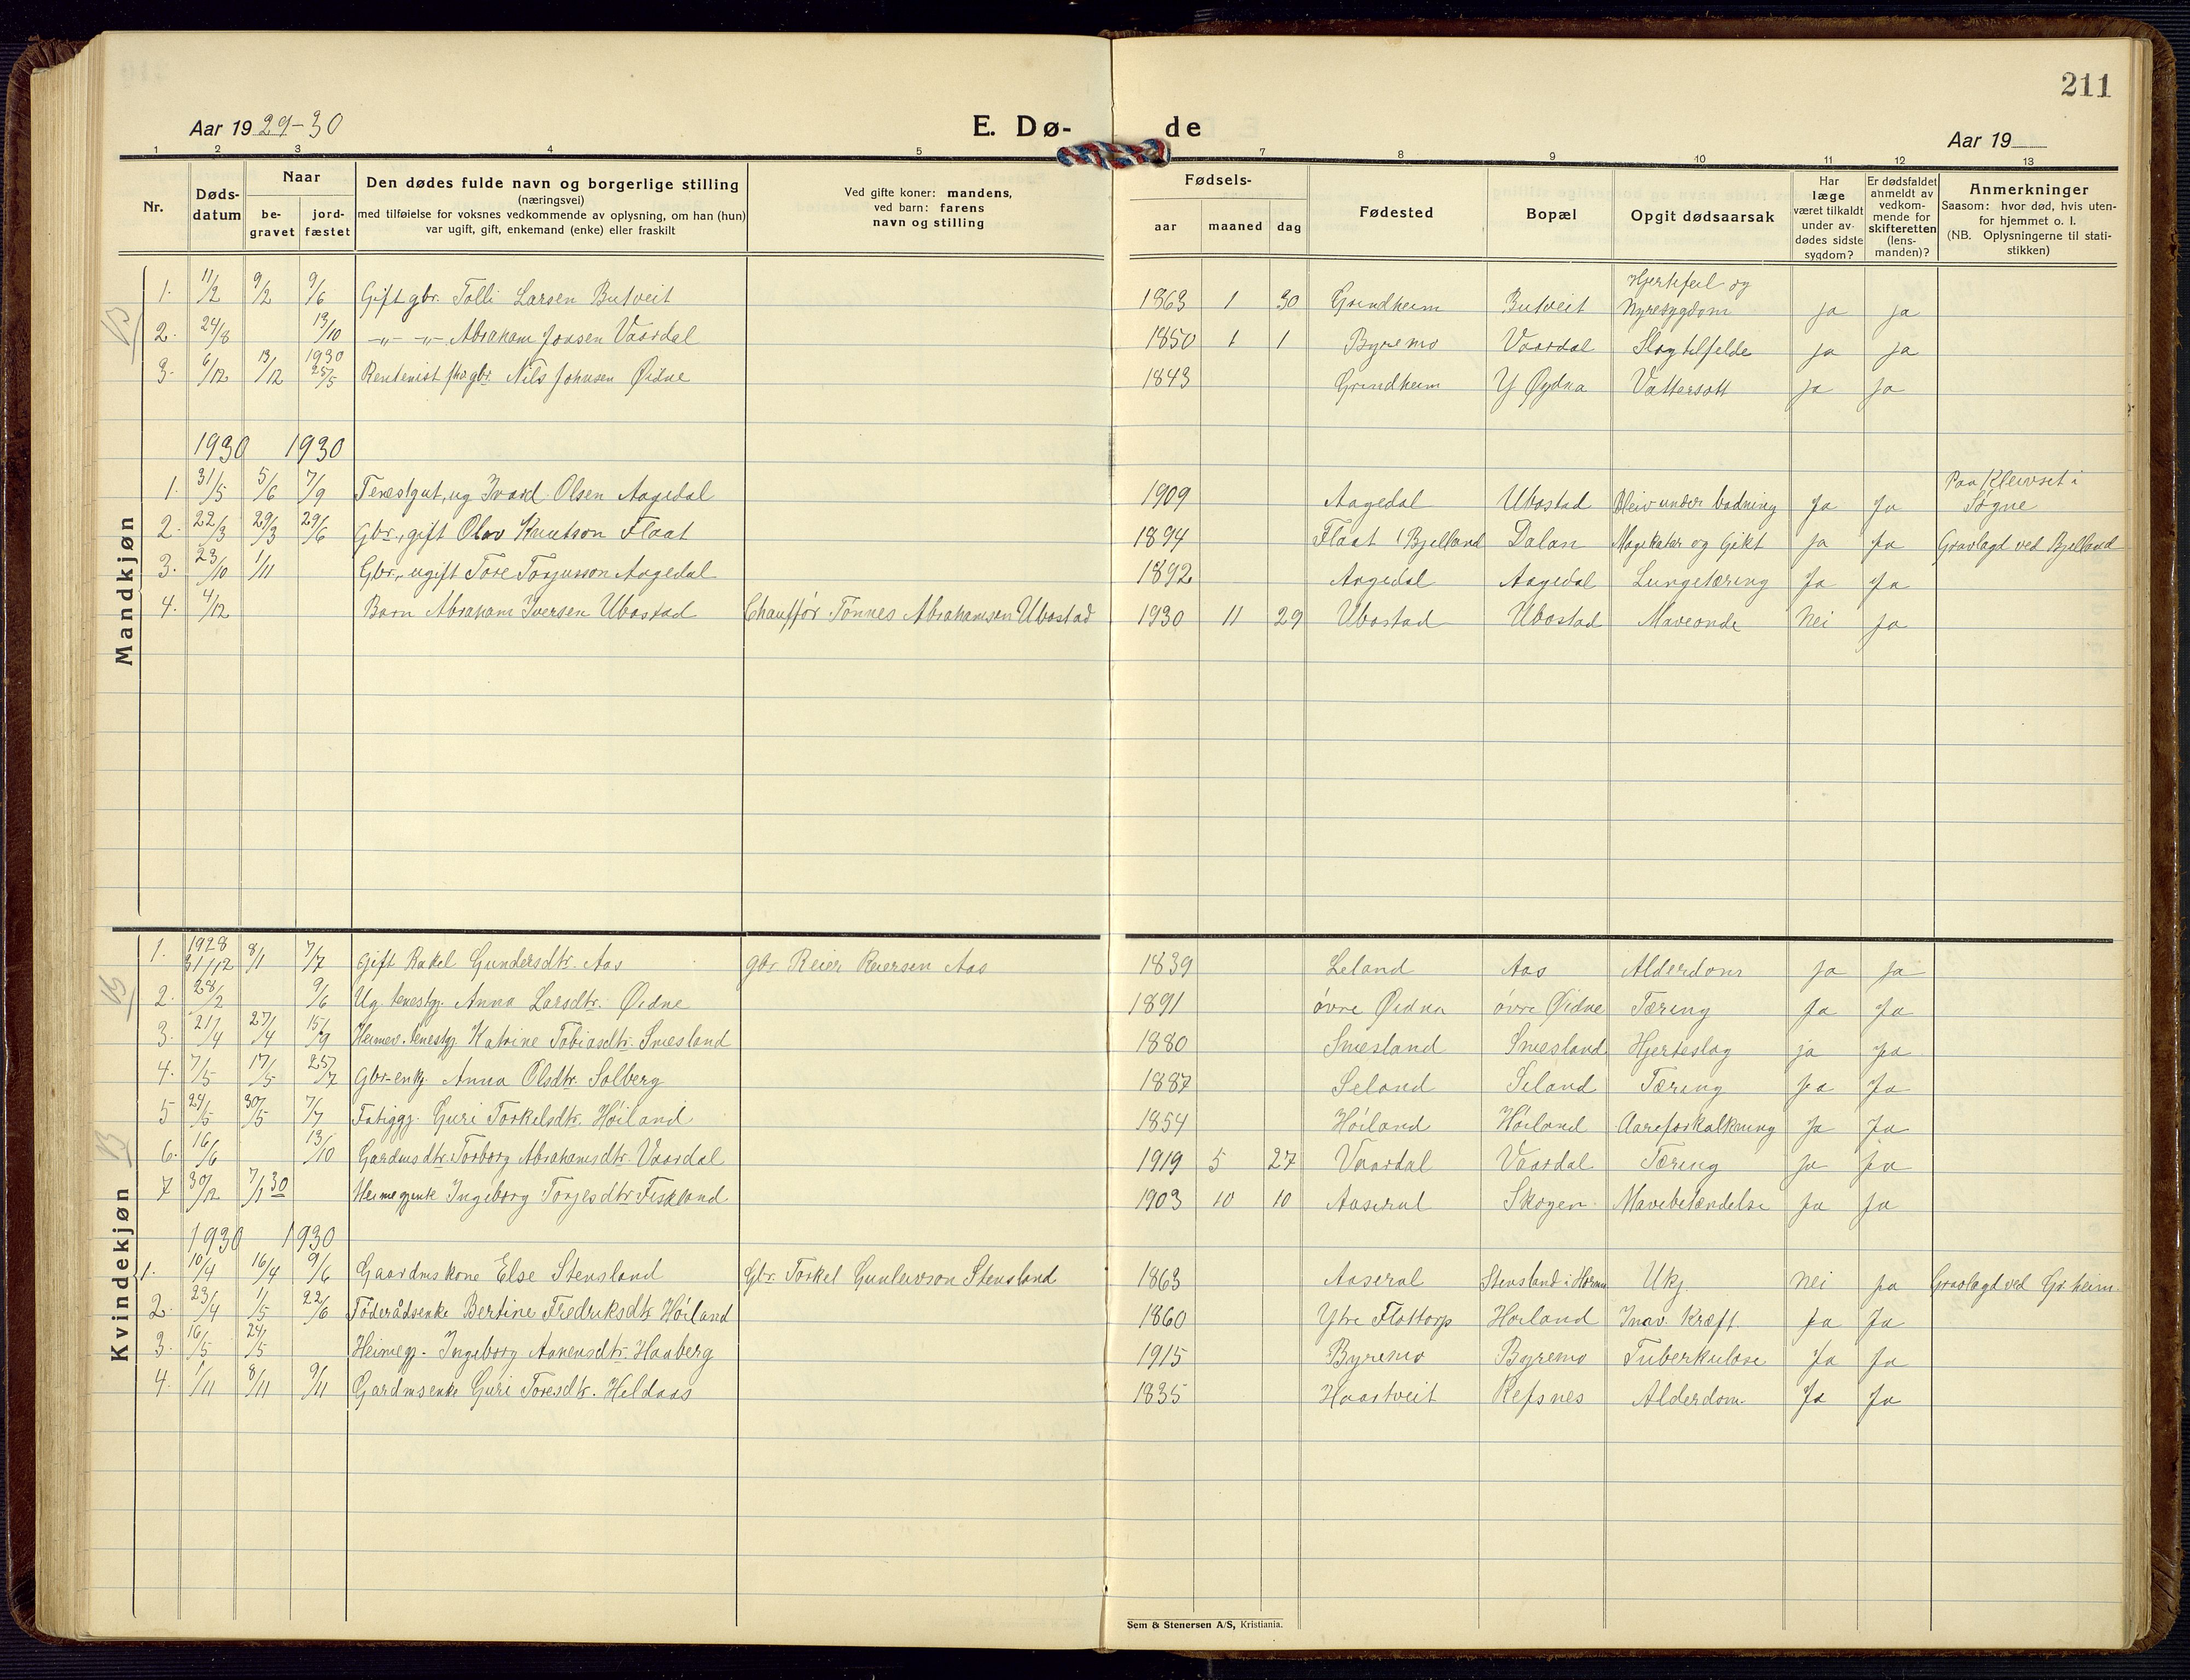 211
Aar 1929-30
E. Dø-
de
Aar 19
1 2 3 4 5 7 8 9 10 11 12 13
Nr.
Døds-
datum
Naar
be-
gravet
jord-
fæstet
Den dødes fulde navn og borgerlige stilling
(næringsvei)
med tilføielse for voksnes vedkommende av oplysning, om han (hun)
var ugift, gift, enkemand (enke) eller fraskilt
Ved gifte koner: mandens,
ved barn: farens
navn og stilling
Fødsels-
aar
maaned
dag
Fødested
Bopæl
Opgit dødsaarsak
Har
læge
været tilkaldt
under av-
dødes sidste
sygdom?
Er dødsfaldet
anmeldt av
vedkom-
mende for
skifteretten
(lens-
manden)?
Anmerkninger
Saasom: hvor død, hvis uten-
for hjemmet o. l.
(NB. Oplysningerne til stati-
stikken)
Mandkjøn
1. 11/2 9/2 9/6 Gift gbr. Tolli Larsen Butveit 1863 1 30 Grindheim Butveit Hjertefeil og Nyresygdom ja ja
2. 24/8 13/10 -"- -"- Abraham Jonsen Vaardal 1850 1 1 Byremo Vaardal Slagtilfelde ja ja
3. 6/12 13/12 1930 25/5 Rentenist fhv gbr. Nils Johnsen Øidne 1843 Grindheim Y Øydna Vattersott ja ja
1930 1930
1. 31/5 5/6 7/9 Tenestgut, ug Ivard Olsen Aagedal 1909 Aagedal Ubostad Bleiv under badning Ja Ja Paa Kleivset i Søgne
2. 22/3 29/3 29/6 Gbr., gift Olav Knutson Flaat 1894 Flaat i Bjelland Dalan Magekatar og Gikt ja Ja Gravlagd ved Bjelland
3. 23/10 1/11 Gbr., ugift Tore Torjusson Aagedal 1892 Aagedal Aagedal Lungetæring Ja Ja
4. 4/12 Barn Abraham Iversen Ubostad Chauffør Tønnes Abrahamsen Ubostad 1930 11 29 Ubostad Ubostad Maveonde Nei Ja
Kvindekjøn
1. 1928 31/12 8/1 7/7 Gift Rakel Gundersdtr. Aas gbr Reier Reiersen Aas 1839 Leland Aas Alderdom ja ja
2. 28/2 9/6 Ug tenestgj. Anna Larsdtr. Øidne 1891 øvre Øidna øvre Øidne Tæring Ja Ja
3. 21/4 27/4 15/9 Heimev. tenestgj Katrine Tobiasdtr. Smesland 1880 Smesland Smesland Hjerteslag ja Ja
4. 7/5 17/5 25/7 Gbr-enkj. Anna Olsdtr. Solberg 1887 Seland Seland Tæring ja Ja
5 24/5 30/5 7/7 Fatiggj. Guri Torkelsdtr. Høiland 1854 Høiland Høiland Aareforkalkning Ja Ja
6. 16/6 13/10 Gardmsdtr. Torborg Abrahamsdtr Vaardal 1919 5 27 Vaardal Vaardal Tæring ja ja
7 30/12 7/1 30 Heimegjente Ingeborg Torjesdtr Fiskland 1903 10 10 Aaseral Skogen Mavebetændelse Ja Ja
1930 1930
1. 10/4 16/4 9/6 Gaardmskone Else Stensland Gbr. Torkel Gunlevson Stensland 1863 Aaseral Stensland i Ukj. Nei ja Gravlagd ved Gr.heim
2. 23/4 1/5 22/6 Føderådsenke Bertine Fredriksdtr Høiland 1860 Ytre Flottorp Høiland Inav. Kræft. Ja Ja
3. 16/5 24/5 Heimegj. Ingeborg Aanensdtr. Haaberg 1915 Byremo Byremo Tuberkulose Ja Ja
4. 1/11 8/11 9/11 Gardmsenke Guri Toresdtr. Heldaas 1835 Haartveit Refsnes Alderdom Ja Ja
Sem & Stenersen A/S, Kristiania.